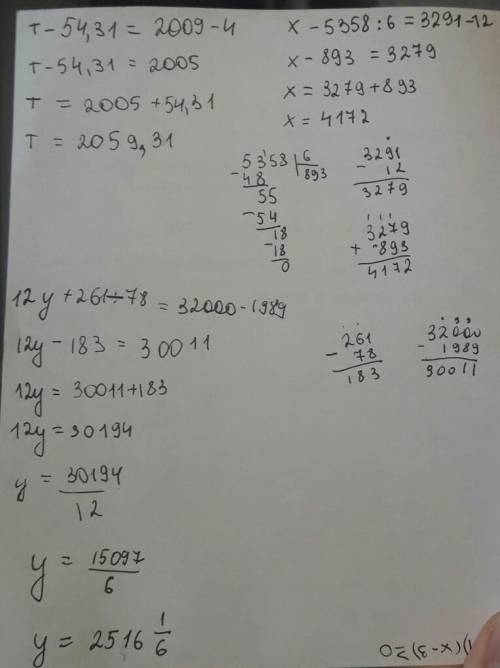 т - 54,31 = 2009 - 4
т - 54,31 = 2005
т = 2005 + 54,31
т = 2059,31
x - 5358 : 6 = 3291 - 12
x - 893 = 3279
x = 3279 + 893
x = 4172
5358 | 6
- 48 | 893
55
- 54
18
- 18
0
3291
- 12
3279
1 1 1
3279
+ 893
4172
12y + 261 - 78 = 32000 - 1989
12y - 183 = 30011
12y = 30011 + 183
12y = 30194
y = 30194/12
y = 15097/6
y = 2516 1/6
261
- 78
183
9 9
32000
- 1989
30011
)(x-3)≥0